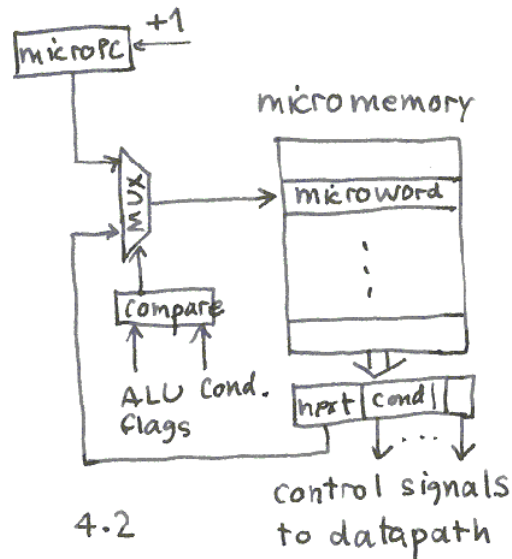 +1
microPC
micromemory
microword
MUX
compare
ALU Cond.
flags
next cond
control signals
to datapath
4.2